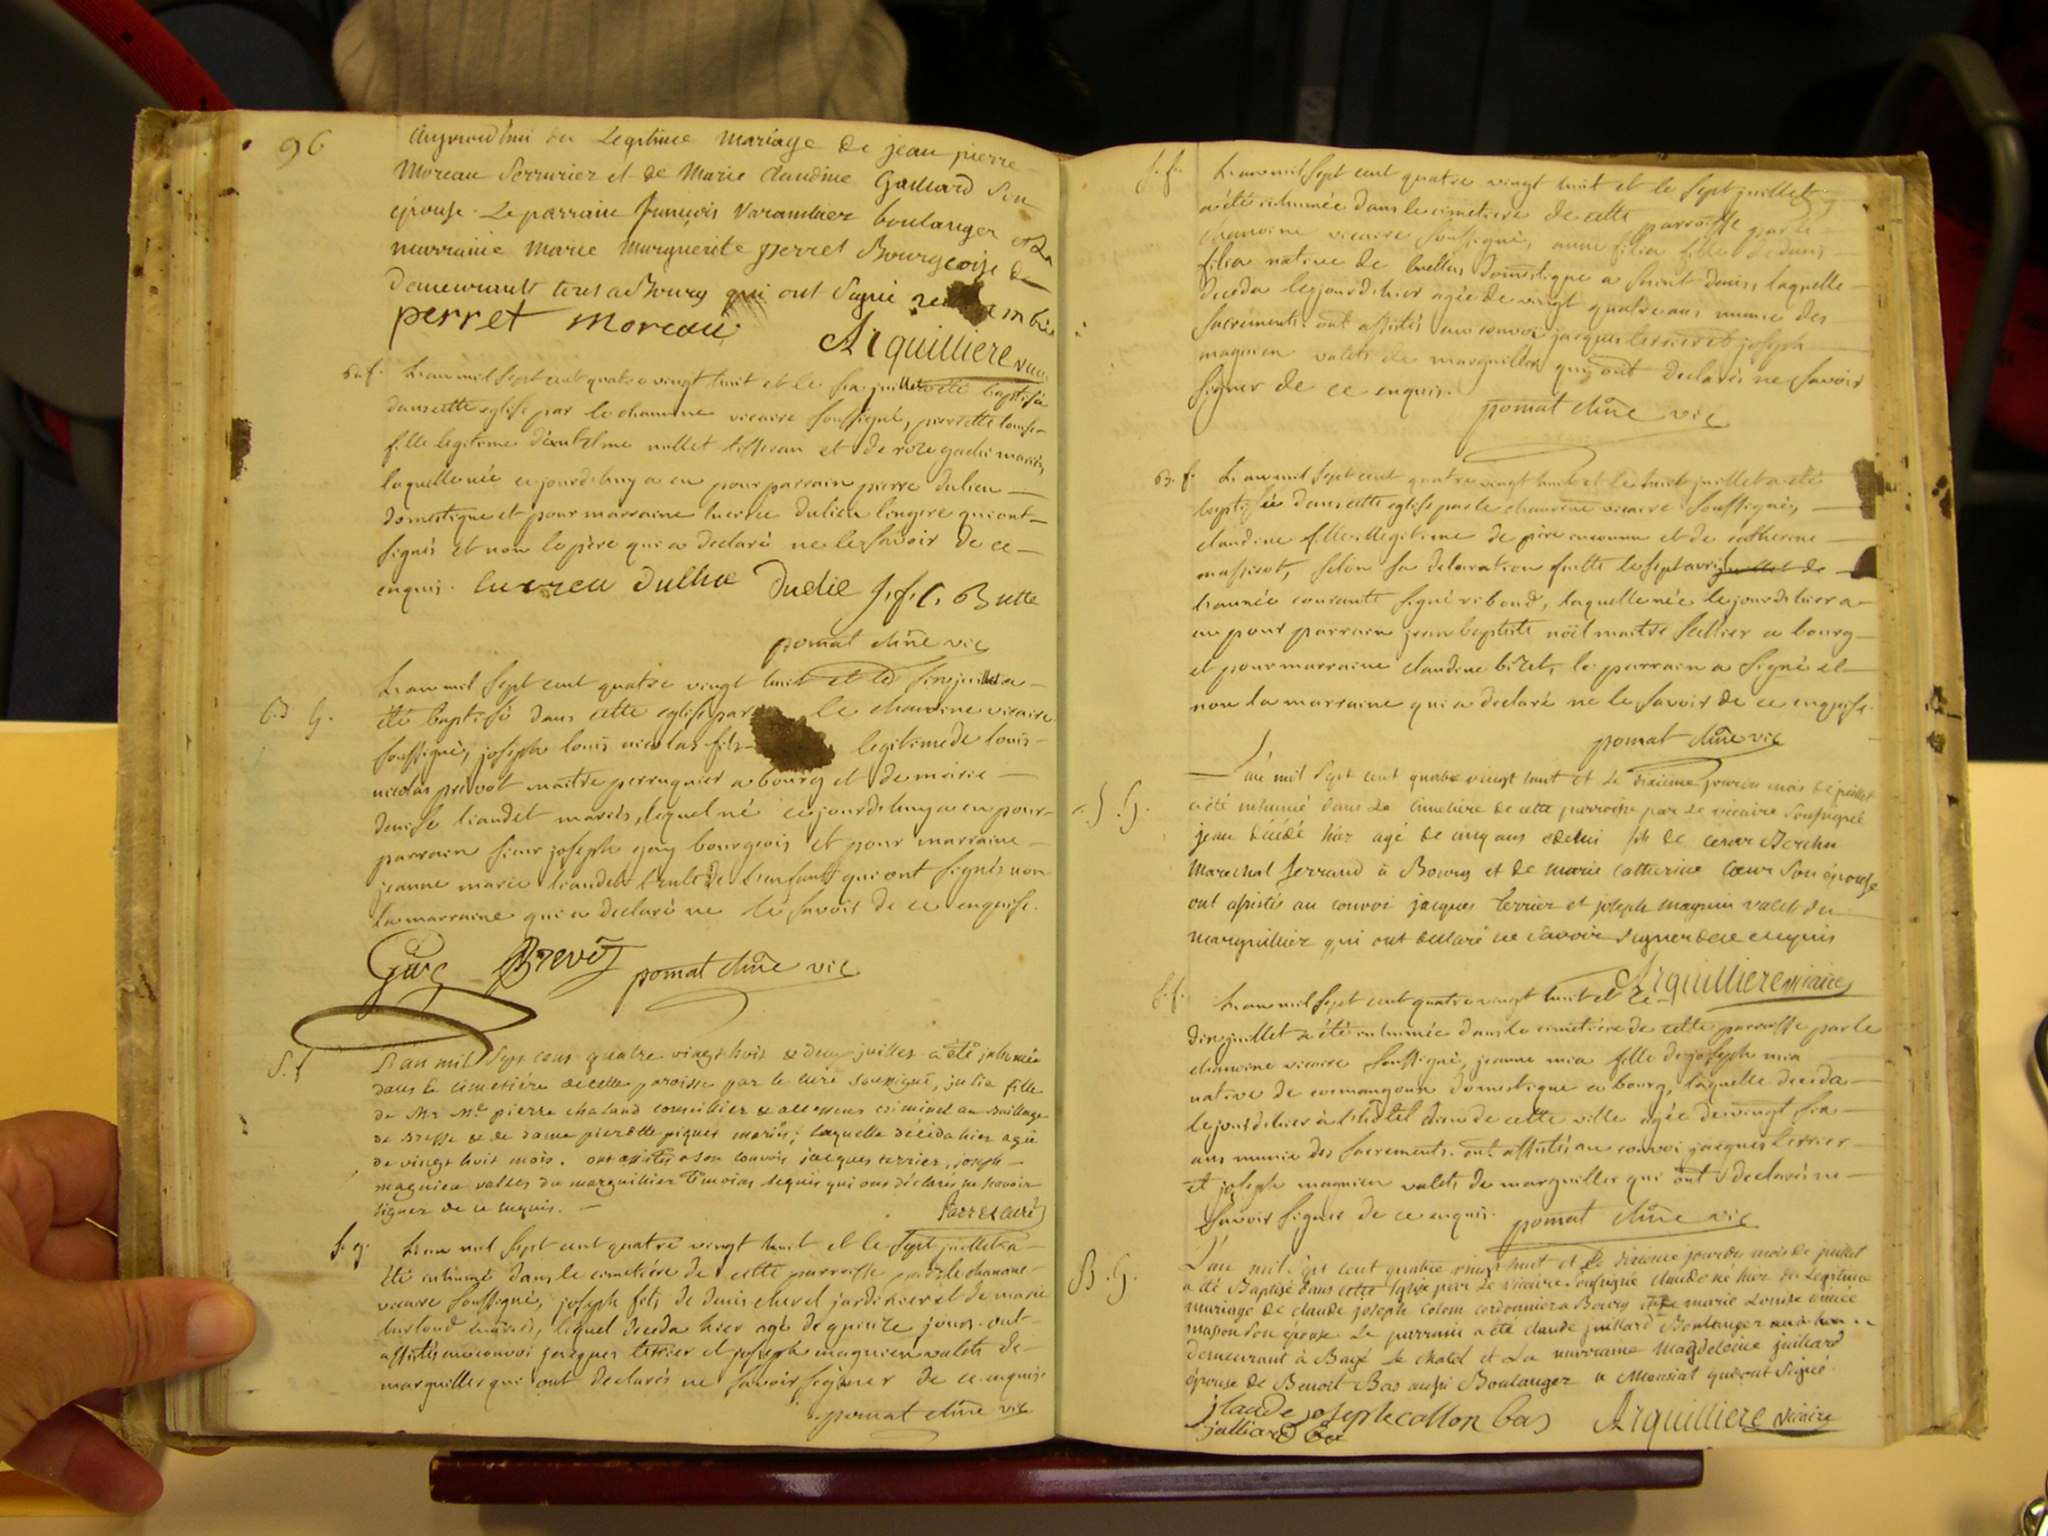 96
aujourd'hui du Legitime Mariage de jean pierre
Moreau Serrurier et de Marie claudine Gaillard Son
epouse. Le parrain françois Varambier boulanger et La
marraine Marie Marguerite perret Bourgeoise de
demeurants tous a Bourg qui ont Signé
perret moreau
Arquilliere vic
B. f. L'an mil Sept cent quatre vingt huit et le Six juillet a été baptisée
dans cette eglise par le chanoine vicaire Soussigné, pierrette louise
fille legitime d'antelme nallet tisseran et de roze gachi mariés,
laquelle née cejourdhuy a eu pour parrain pierre dulieu
domestique et pour marraine lucrece dulieu lingere qui ont
signés et non le père qui a declaré ne le savoir de ce
enquis. lucrea dulhie dudie j. f. C. Butte
pomat chne vic
B. G. L'an mil Sept cent quatre vingt huit et le Six juillet a
été baptisé dans cette eglise par le chanoine vicaire
soussigné, joseph louis nicolas fils legitime de louis
nicolas prevot maitre perruquier a bourg et de marie
denise liaudet mariés, lequel né cejourdhuy a eu pour
parrain sieur joseph goy bourgeois et pour marraine
jeanne marie liaudet tante de l'enfant qui ont signés non
la marraine qui a declaré ne le savoir de ce enquise.
Prevôt pomat chne vic
S. f L'an mil Sept cens quatre vingt huit & deux juillet a été inhumée
dans le cimetiére de cette paroisse par le curé soussigné, julie fille
de Mr Me pierre chaland conseillier & assesseur criminel au Baillage
de Bresse & de dame pierrette piquet mariés; laquelle décéda hier agée
de vingt huit mois. ont assistés a son convoi jacques terrier, joseph
magnien valles du marguillier témoins requis qui ont déclarés ne savoir
signer de ce enquis.
curé
S. g. L'an mil Sept cent quatre vingt huit et le Sept juillet a
été inhumé dans le cimetiére de cette parroisse par le chanoine
vicaire Soussigné, joseph fils de denis chevel jardinier et de marie
burtoud mariés, lequel deceda hier agé de quinze jours. ont
assistés au convoi jacques terrier et joseph magnien valets de
marguillier qui ont declarés ne savoir signer de ce enquis
pomat chne vic
S. f. L'an mil Sept cent quatre vingt huit et le Sept juillet
a été inhumée dans le cimetiere de cette parroisse par le
chanoine vicaire soussigné, anne filia fille de denis
filia native de buellas domestique a saint denis, laquelle
deceda le jour d'hier agée de vingt quatre ans munie des
sacrements. ont assistés au convoi jacques terrier et joseph
magnien valets de marguillier qui ont declarés ne savoir
signer de ce enquis.
pomat chne vic
B. f. L'an mil Sept cent quatre vingt huit et le huit juillet a été
baptisée dans cette eglise par le chanoine vicaire soussigné,
claudine fille illegitime de père inconnu et de catherine
massicot, selon sa declaration faitte le sept avril juillet de
l'année courante signé riboud, laquelle née le jour d'hier a
eu pour parrain jean baptiste nöel maitre sellier a bourg
et pour marraine claudine bizet, le parrain a signé et
non la marraine qui a declaré ne le savoir de ce enquise.
pomat chne vic
S. G. L'an mil Sept cent quatre vingt huit et Le dixieme jour du mois de juillet
a été inhumé dans Le Cimetiere de cette parroisse par Le vicaire Soussigné
jean décédé hier agé de cinq ans et demi fils de cesar Berchu
Marechal ferrand à Bourg et de marie catherine Cœur Son épouse
ont assistés au convoi jacques Terrier et joseph magnin valets du
marguillier qui ont declaré ne Savoir Signer de ce enquis
Arquilliere vicaire
S. f. L'an mil Sept cent quatre vingt huit et le
dix juillet a été inhumée dans le cimetiére de cette parroisse par le
chanoine vicaire soussigné, jeanne mia fille de joseph mia
native de cormangoun domestique a bourg, laquelle deceda
le jour d'hier à l'hôtel dieu de cette ville agée de vingt six
ans munie des sacrements. ont assistés au convoi jacques terrier
et joseph magnien valets de marguillier qui ont declarés ne
savoir signer de ce enquis. pomat chne vic
B. G. L'an mil Sept cent quatre vingt huit et Le dixieme jour du mois de juillet
a été Baptisé dans cette Eglise par Le vicaire Soussigné claude né hier du Legitime
mariage de claude joseph colom cordonnier a Bourg et de marie Louise aimée
masson Son épouse. Le parrain a été claude juillard Boulanger
demeurant à Bagé le chatel et La marraine Magdeleine juillard
épouse de Benoit Bas aussi Boulanger a Monsiat qui ont Signé
claude joseph collon bas Arquilliere vicaire
julliard